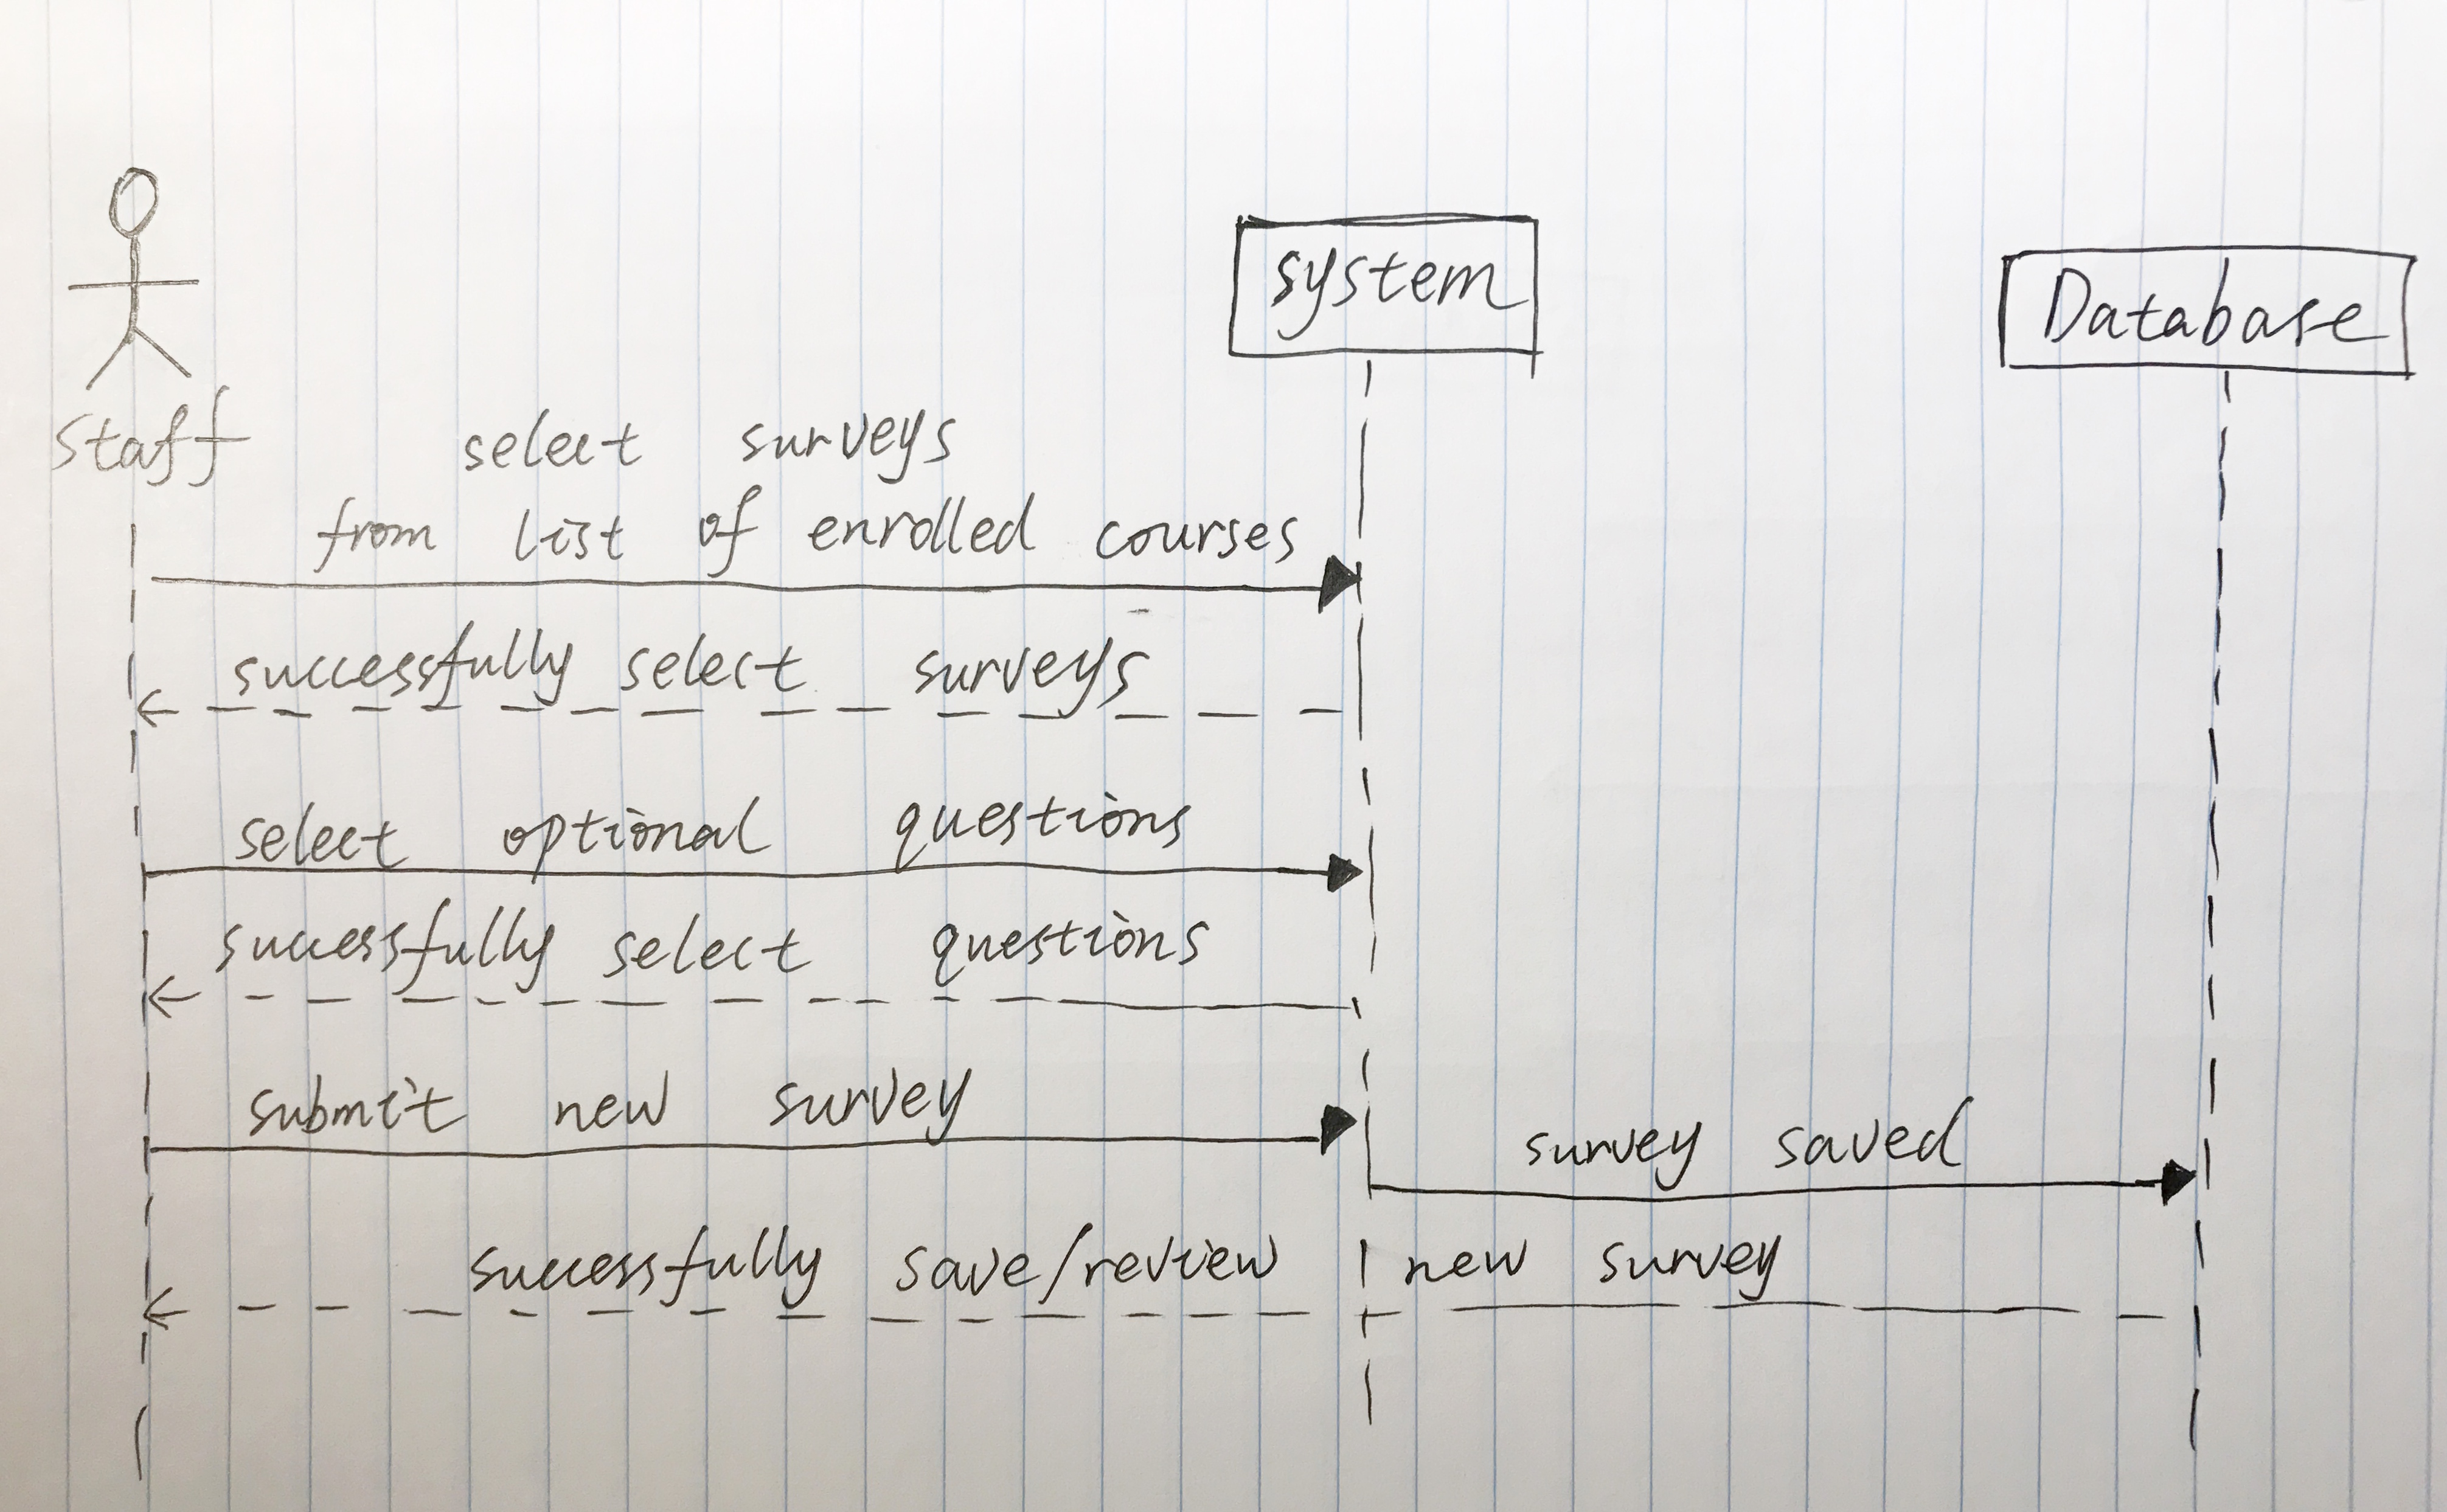 system
Database
Staff
select surveys
from list of enrolled courses
successfully select surveys
select optional questions
successfully select questions
submit new survey
survey saved
successfully save/review new survey